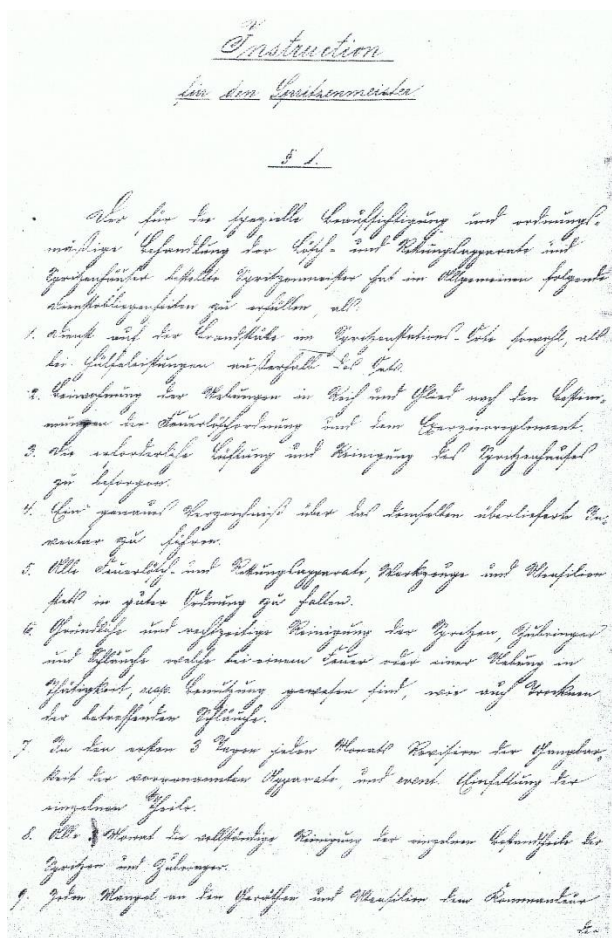 Instruction
für den Spritzenmeister
§ 1.
Der für die spezielle Beaufsichtigung und ordnungs-
mäßige Behandlung der Lösch- und Rettungsapparate und
Spritzenhäuser bestellte Spritzenmeister hat im Allgemeinen folgende
Dienstobliegenheiten zu erfüllen, als:
1. Dienst auf der Brandstätte im Spritzenstations-Orte sowohl, als
bei Hülfeleistungen außerhalb des Orts.
2. Beiwohnung der Uebungen in Reih und Glied nach den Bestim-
mungen der Feuerlöschordnung und dem Exerzierreglement.
3. Die erforderliche Lüftung und Reinigung des Spritzenhauses
zu besorgen.
4. Ein genaues Verzeichniß über das demselben überlieferte In-
ventar zu führen.
5. Alle Feuerlösch- und Rettungsapparate, Werkzeuge und Utensilien
stets in guter Ordnung zu halten.
6. Gründliche und rechtzeitige Reinigung der Spritzen, Zubringer
und Schläuche welche bei einem Feuer oder einer Uebung in
Thätigkeit, resp. Benutzung gewesen sind, wie auch Trocknen
der betreffenden Schläuche.
7. In den ersten 3 Tagen jeden Monats Revision der Gangbar-
keit der vorgenannten Apparate, und event. Einfettung der
einzelnen Theile.
8. Alle Monat die vollständige Reinigung der einzelnen Bestandtheile der
Spritzen und Zubringer.
9. Jeden Mangel an den Geräthen und Utensilien dem Kommandeur
der